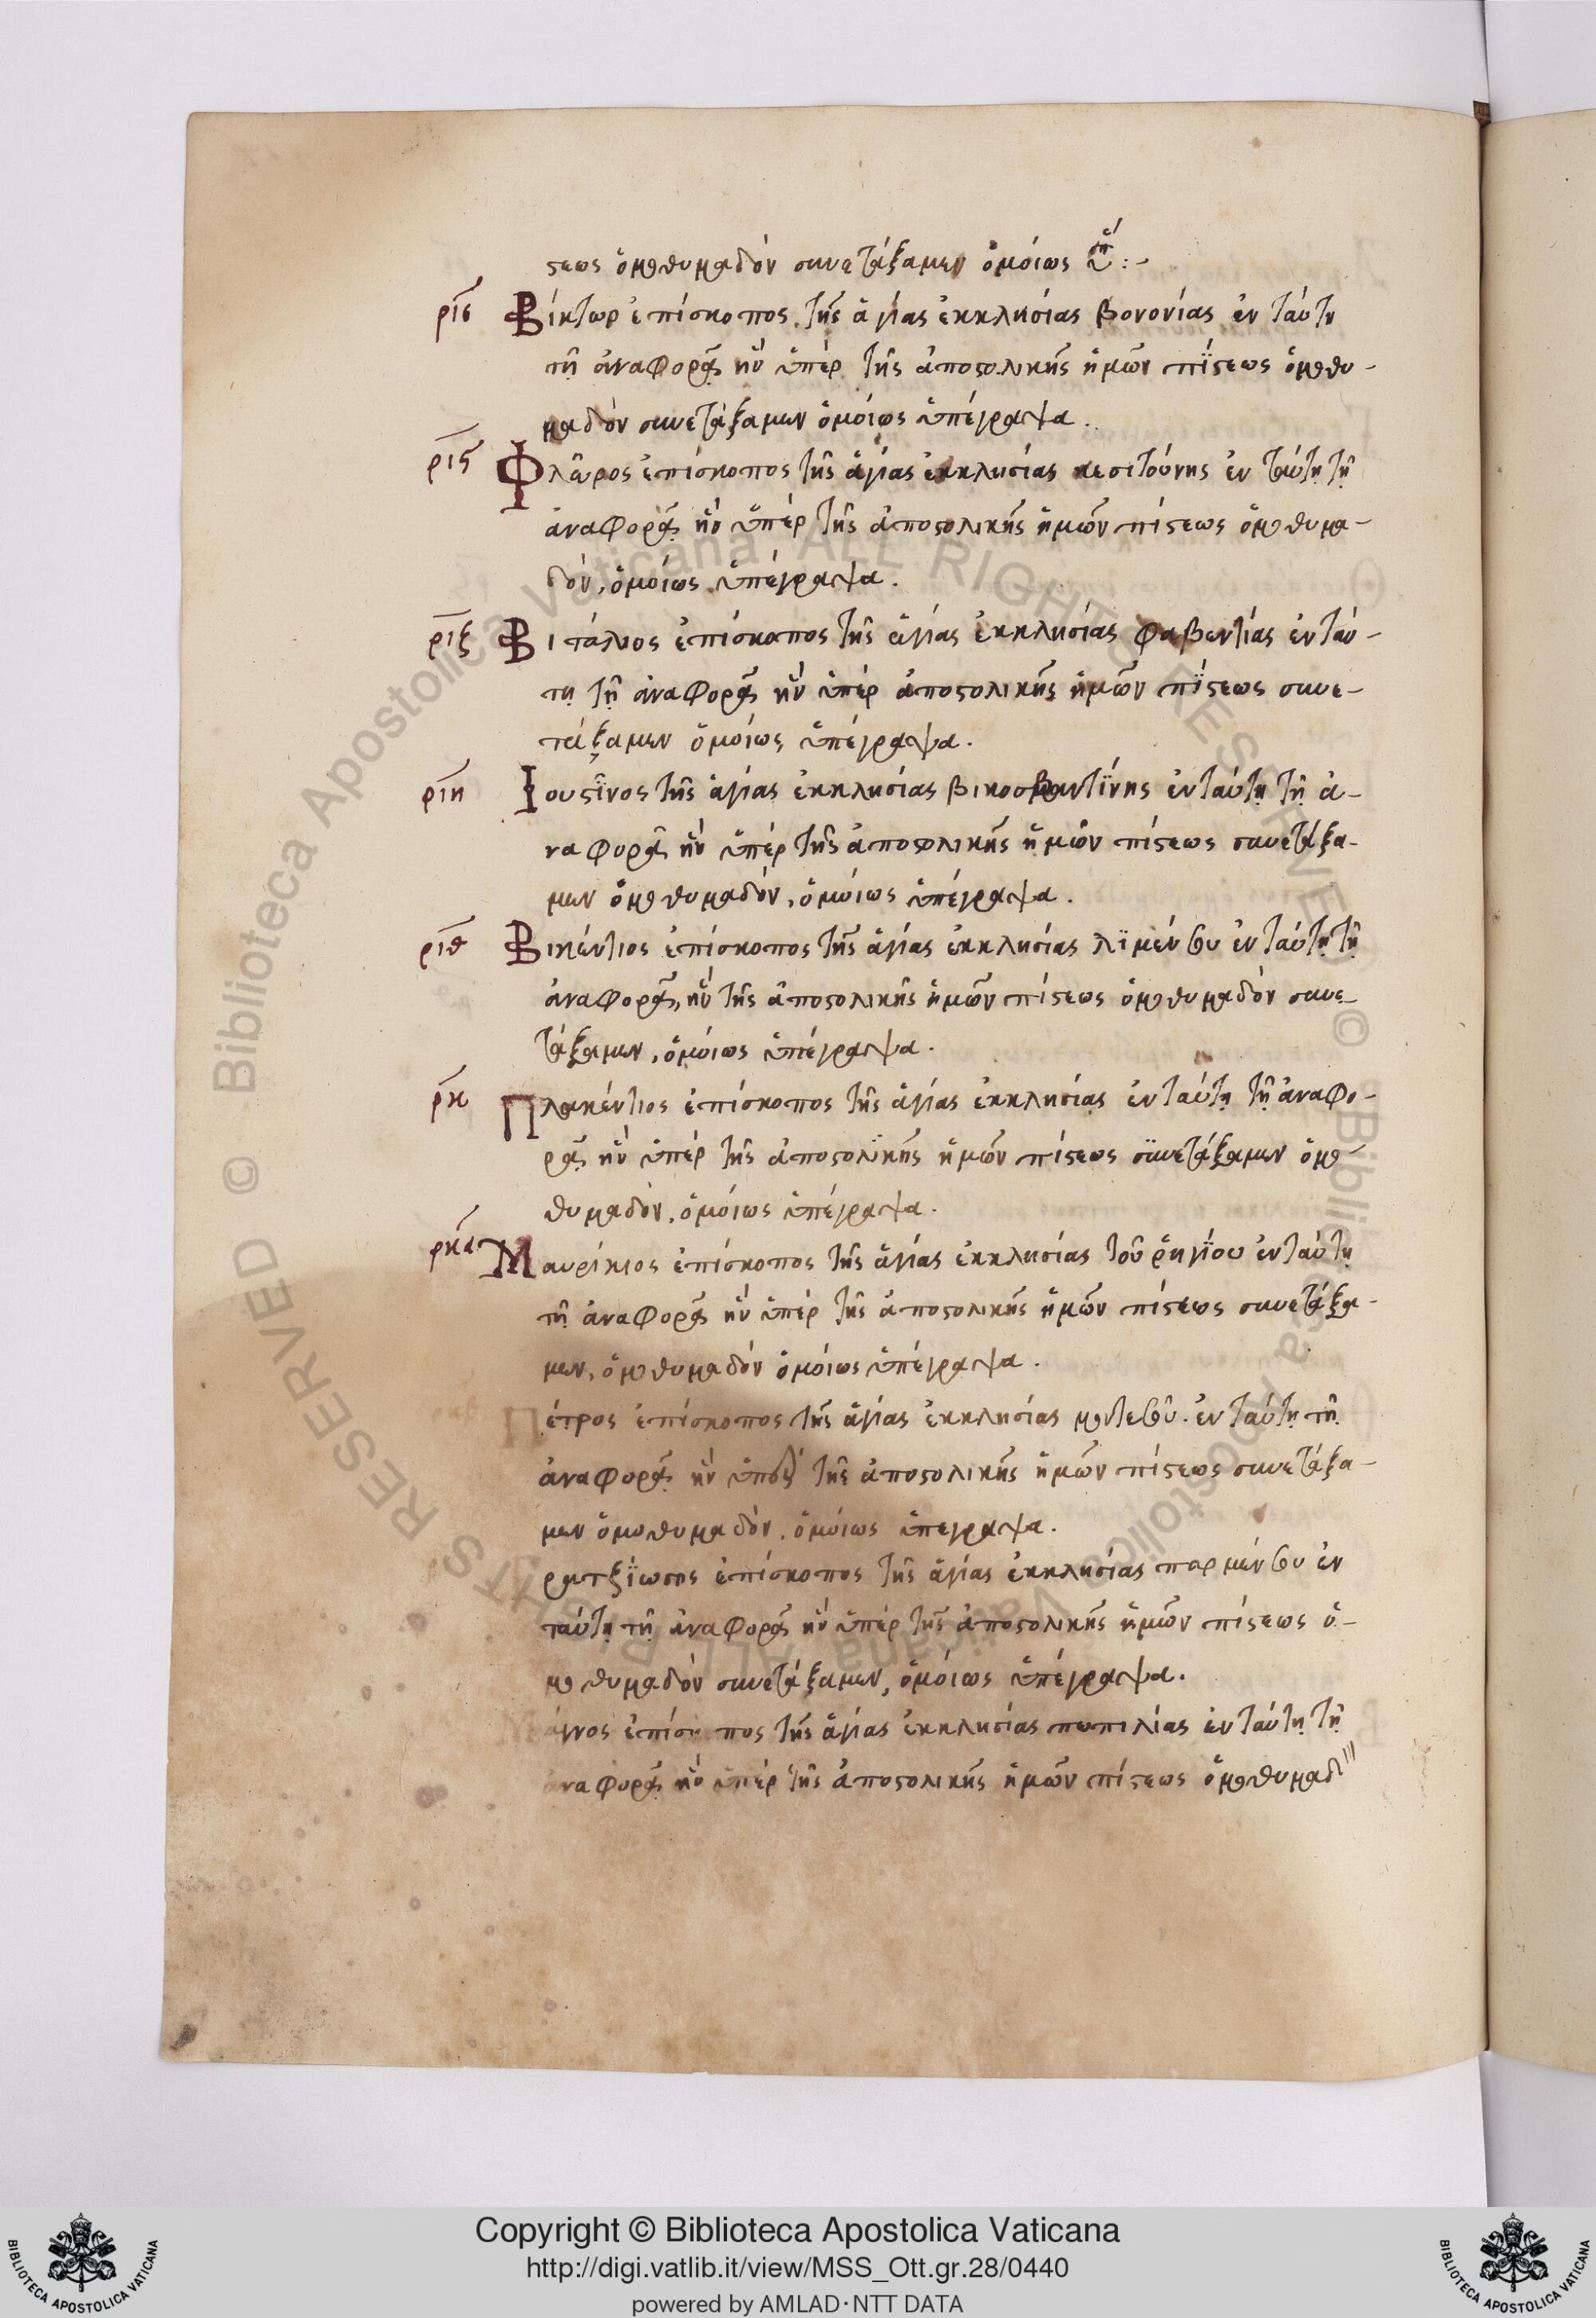 στεως ὁμοθυμαδὸν συνετάξαμεν ὁμοίως
ριε Βίκτωρ ἐπίσκοπος τῆς ἁγίας ἐκκλησίας βονονίας ἐν ταύτη
τῆ ἀναφορᾶ ἣν ὑπὲρ τῆς ἀποστολικῆς ἡμῶν πίστεως ὁμοθυ-
μαδὸν συνετάξαμεν ὁμοίως ὑπέγραψα.
ριϛ Φλῶρος ἐπίσκοπος τῆς ἁγίας ἐκκλησίας κεσιτούνης ἐν ταύτη τῆ
ἀναφορᾶ ἣν ὑπὲρ τῆς ἀποστολικῆς ἡμῶν πίστεως ὁμοθυμα-
δόν, ὁμοίως ὑπέγραψα.
ριζ Βιτάλιος ἐπίσκοπος τῆς ἁγίας ἐκκλησίας φαβεντίας ἐν ταύ-
τη τῆ ἀναφορᾶ ἣν ὑπὲρ ἀποστολικῆς ἡμῶν πίστεως συνε-
τάξαμεν ὁμοίως ὑπέγραψα.
ριη Ιουστῖνος τῆς ἁγίας ἐκκλησίας ἐν ταύτη τῆ ἀ-
ναφορᾶ ἣν ὑπὲρ τῆς ἀποστολικῆς ἡμῶν πίστεως συνετάξα-
μεν ὁμοθυμαδόν, ὁμοίως ὑπέγραψα.
ριθ Βικέντιος ἐπίσκοπος τῆς ἁγίας ἐκκλησίας λϊμέντου ἐν ταύτη τῆ
ἀναφορᾶ, ἣν τῆς ἀποστολικῆς ἡμῶν πίστεως ὁμοθυμαδὸν συνε-
τάξαμεν, ὁμοίως ὑπέγραψα.
ρκ Πλακέντιος ἐπίσκοπος τῆς ἁγίας ἐκκλησίας ἐν ταύτη τῆ ἀναφο-
ρᾶ ἣν ὑπὲρ τῆς ἀποστολικῆς ἡμῶν πίστεως συνετάξαμεν ὁμο-
θυμαδόν, ὁμοίως ὑπέγραψα.
ρκα Μαυρίκιος ἐπίσκοπος τῆς ἁγίας ἐκκλησίας τοῦ ῥηγίου ἐν ταύτη
τῆ ἀναφορᾶ ἣν ὑπὲρ τῆς ἀποστολικῆς ἡμῶν πίστεως συνετάξα-
μεν, ὁμοθυμαδὸν ὁμοίως ὑπέγραψα.
Πέτρος ἐπίσκοπος τῆς ἁγίας ἐκκλησίας ἐν ταύτη τῆ
ἀναφορᾶ ἣν τῆς ἀποστολικῆς ἡμῶν πίστεως συνετάξα-
μεν ὁμοθυμαδόν, ὁμοίως ὑπέγραψα.
ἐπίσκοπος τῆς ἁγίας ἐκκλησίας παρμέντου ἐν
ταύτη τῆ ἀναφορᾶ ἣν ὑπὲρ τῆς ἀποστολικῆς ἡμῶν πίστεως ὁ-
μοθυμαδὸν συνετάξαμεν, ὁμοίως ὑπέγραψα.
τῆς ἁγίας ἐκκλησίας ποπιλίας ἐν ταύτη τῆ
ἀναφορᾶ ἣν ὑπὲρ τῆς ἀποστολικῆς ἡμῶν πίστεως ὁμοθυμαδ
© Biblioteca Apostolica Vaticana ALL RIGHTS RESERVED © Biblioteca Apostolica Vaticana ALL RIGHTS RESERVED
Copyright © Biblioteca Apostolica Vaticana
http://digi.vatlib.it/view/MSS_Ott.gr.28/0440
powered by AMLAD·NTT DATA
BIBLIOTECA APOSTOLICA VATICANA
BIBLIOTECA APOSTOLICA VATICANA